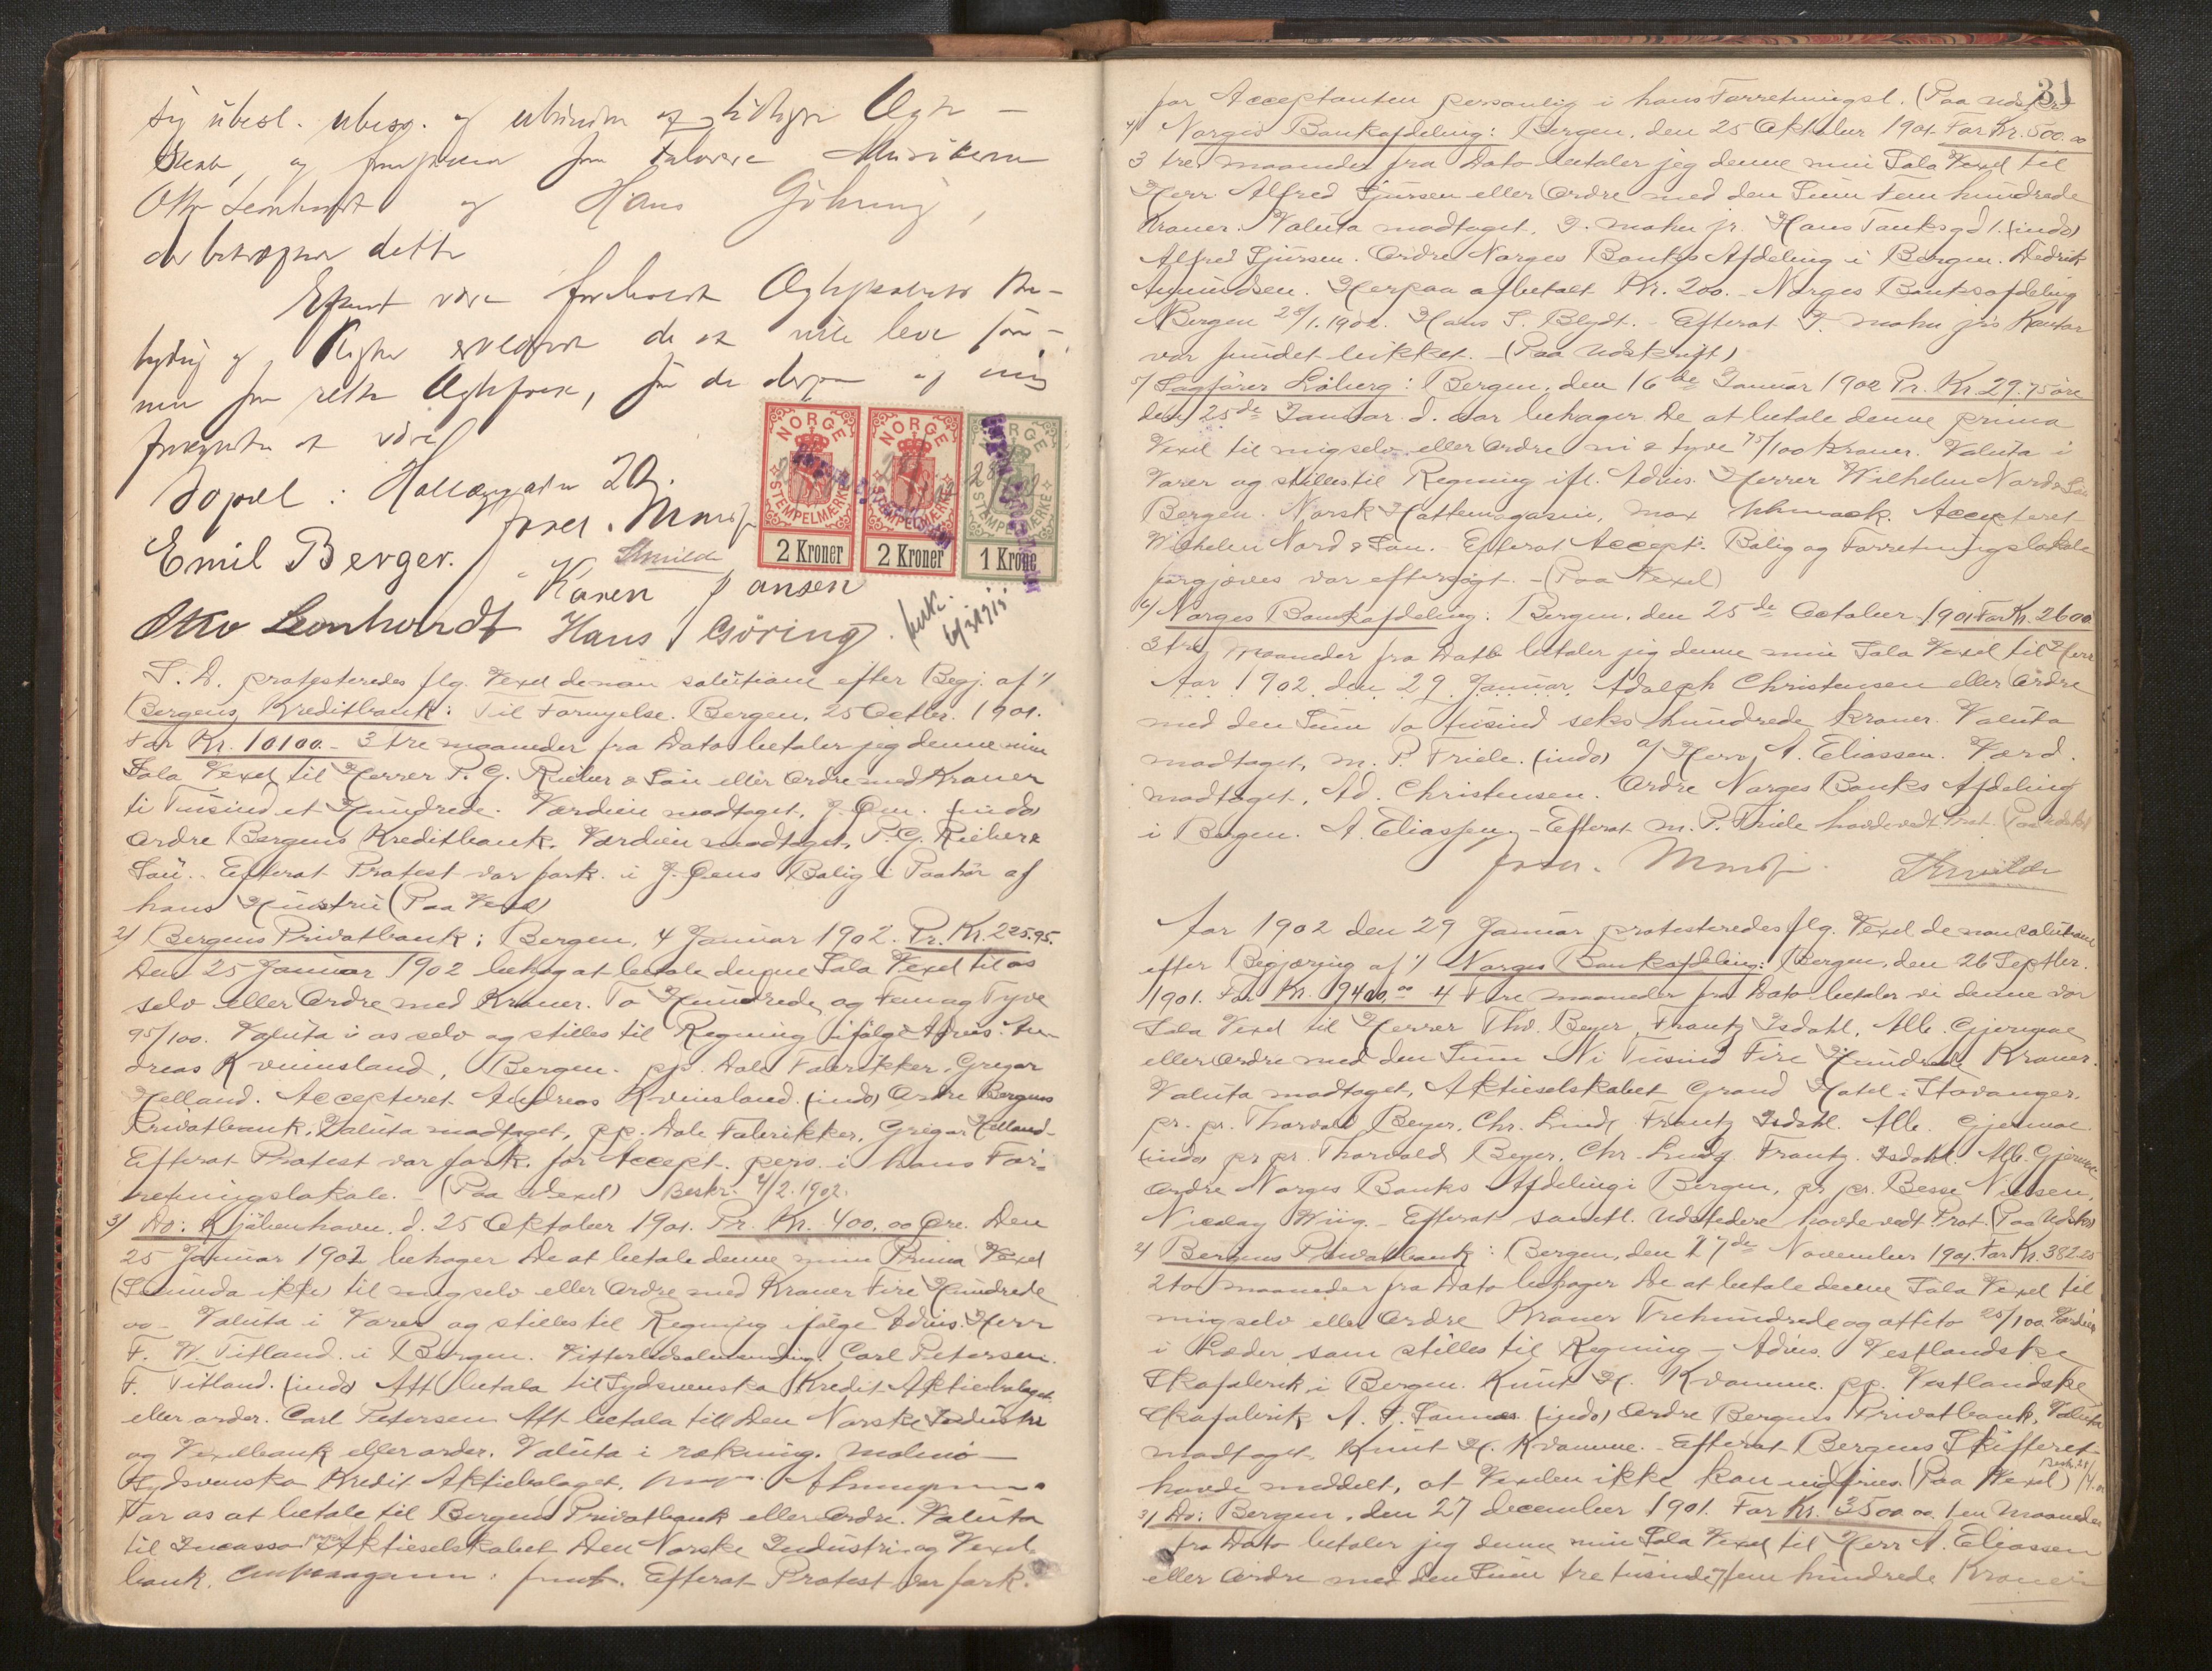 sig ubesl. ubesv. og ubunden af tidligere Ægte-
skab, og fremstillede som Forlovere Musikerne
Otto Leonhardt og Hans Göhring,
der bekræftede dette
Efterat være foreholdt Ægteskabets Be-
tydning og Pligter erklærede de at ville leve sam-
men som rette Ægtefolk, før de derpaa af mig
forkyndtes at være
NORGE STEMPELMÆRKE 2 Kroner
NORGE STEMPELMÆRKE 2 Kroner
NORGE STEMPELMÆRKE 1 Krone
Emil Berger.
Karen Jansen
Otto Leonhardt Hans Göring.
S. D. protesteredes flg. Vexel de non solutione efter Begj. af 1/
Bergens Kreditbank: Til Fornyelse. Bergen, 25 Octbr. 1901.
For Kr. 10100.- 3 tre maaneder fra Dato betaler jeg denne min
Sola Vexel til Herrer P. G. Rieber & Søn eller Ordre med Kroner
ti Tusind et Hundrede. Værdien modtaget, J. Øen. (indo)
Ordre Bergens Kreditbank. Værdien modtaget, P. G. Rieber &
Søn. - Efterat Protest var fork. i J. Øens Bolig i Paahør af
hans Hustru (Paa Vexel)
2/ Bergens Privatbank: Bergen, 4 Januar 1902. Pr. Kr. 225.95.
Den 25 Januar 1902 behag at betale denne Sola Vexel til os
selv eller Ordre med Kroner. To Hundrede og Fem og Tyve
95/100. Valuta i os selv og stilles til Regning ifølge Advis. An-
dreas Kvinnsland, Bergen. pp. Dale Fabrikker, Gregar
Helland. Accepteret Andreas Kvinsland. (indo) Ordre Bergens
Privatbank, Valuta modtaget, pp. Dale Fabrikker, Gregar Helland.-
Efterat Protest var fork. for Accept. pers. i hans For-
retningslokale. - (Paa Vexel) Beskr. 4/2. 1902.
3/ Do: Kjøbenhavn, d. 25 Oktober 1901. Pr. Kr. 400.00 Øre. Den
25 Januar 1902 behager De at betale denne min Prima Vexel
(Secunda ikke) til mig selv eller Ordre med Kroner Fire Hundrede
00 - Valuta i Varer og stilles til Regning ifølge Advis. Herr
F. W. Titland. i Bergen. Carl Petersen.
F. Titland. (indo) Att betala til Sydsvenska Kredit Aktiebolaget
eller order. Carl Petersen Att betala till Den Norske Industri
og Vexelbank eller order. Valuta i räkning. Malmö -
Sydsvenska Kredit Aktiebolaget,
For os at betale til Bergens Privatbank eller Ordre. Valuta
til Incasso. Aktieselskabet Den Norske Industri- og Vexel-
bank. Efterat Protest var fork.
31
for Acceptanten personlig i hans Forretningsl. (Paa Udskr.)
4/ Norges Bankafdeling: Bergen, den 25 Oktober 1901. For Kr. 500.00
3 tre maaneder fra Dato betaler jeg denne min Sola Vexel til
Herr Alfred Sjursen eller Ordre med den Sum fem hundrede
Kroner. Valuta modtaget, J. Mohn jr. Hans Tanksgd 1. (indo)
Alfred Sjursen. Ordre Norges Banks Afdeling i Bergen. Dedrik
Amundsen. Herpaa afbetalt Kr. 200. - Norges Banksafdeling
Bergen 28/1.1902. Hans S. Blydt. - Efterat J. Mohn jr's Kontor
var fundet lukket. - (Paa Udskrift)
5/ Sagfører Løberg: Bergen, den 16de Januar 1902 Pr. Kr. 29.75 øre
den 25de Januar d. aar behager De at betale denne prima
Vexel til mig selv eller Ordre ni & tyve 75/100 Kroner. Valuta i
Varer og stilles til Regning ifl. Advis. Herrer Wilhelm Nord & Søn
Bergen. Norsk Hattemagasin, Max Schmack. Accepteret
Wilhelm Nord & Søn. Efterat Accept. Bolig og Forretningslokale
forgjæves var eftersøgt. - (Paa Vexel)
6/ Norges Bankafdeling: Bergen, den 25de October 1901 For Kr. 2600.
3 tre Maaneder fra Dato betaler jeg denne min Sola Vexel til Herr
Aar 1902 den 29 Januar. Adolph Christensen eller Ordre
med den Sum To tusind seks hundrede Kroner. Valuta
modtaget, M. P. Friele. (indo) a/ Herr A. Eliassen. Værd.
modtaget, Ad. Christensen. Ordre Norges Banks Afdeling
i Bergen. A. Eliassen, - Efterat M. P. Friele havde vedt. Prot. (Paa Udskr.)
Aar 1902 den 29 Januar protesteredes flg. Vexel de non solutione
efter Begjæring af 1/ Norges Bankafdeling: Bergen, den 26 Septbr.
1901. For Kr. 9400,00 4 Fire maaneder fra Dato betaler vi denne vor
Sola Vexel til Herrer Thv. Beyer, Frantz Isdahl, Alb. Gjernæe
eller Ordre med den Sum Ni Tusind Fire Hundrede Kroner.
Valuta modtaget, Aktieselskabet Grand Hotel i Stavanger.
pr. pr. Thorvald Beyer, Chr. Lind, Frantz Isdahl. Alb. Gjernæe.
(indo) pr pr. Thorvald Beyer, Chr. Lind, Frantz. Isdahl. Alb. Gjernæe
Ordre Norges Banks Afdeling i Bergen, pr pr. Besse Nielsen,
Nicolay Wiig. - Efterat samtl. Udstedere havde vedt. Prot. (Paa Udskr)
2/ Bergens Privatbank: Bergen, den 27de November 1901. For Kr. 382.25
2 to maaneder fra Dato behager De at betale denne Sola Vexel til
mig selv eller Ordre Kroner Trehundrede og otti to 25/100. Værdien
i Læder som stilles til Regning - Advis. Vestlandske
Skofabrik i Bergen. Knut H. Kvamme. pp. Vestlandske
Skofabrik A. S. (indo) Ordre Bergens Privatbank, Valuta
modtaget, Knut H. Kvamme. - Efterat Bergens Skifteret
havde meddelt, at Vexelen ikke kan indfries. (Paa Vexel)
3/ Do: Bergen, den 27 december 1901. For Kr. 3500.00. 1 en Maaned
fra Dato betaler jeg denne min Sola Vexel til Herr A. Eliassen
eller Ordre med den Sum tre tusinde fem hundrede Kroner